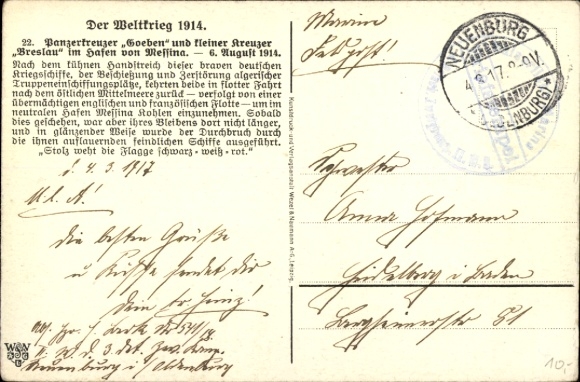 Der Weltkrieg 1914.
22. Panzerkreuzer „Goeben“ und kleiner Kreuzer
„Breslau“ im Hafen von Messina. — 6. August 1914.
Nach dem kühnen Handstreich dieser braven deutschen
Kriegsschiffe, der Beschießung und Zerstörung algerischer
Truppeneinschiffungsplätze, kehrten beide in flotter Fahrt
nach dem östlichen Mittelmeere zurück — verfolgt von einer
übermächtigen englischen und französischen Flotte — um im
neutralen Hafen Messina Kohlen einzunehmen. Sobald
dies geschehen, war aber ihres Bleibens dort nicht länger,
und in glänzender Weise wurde der Durchbruch durch
die ihnen auflauernden feindlichen Schiffe ausgeführt.
„Stolz weht die Flagge schwarz-weiß-rot.“
4. 3. 1917
M. l. A!
die besten Grüße
u Küsse sendet dir
dein Heinz!
Neuenburg i/Oldenburg
W&N
Kunstdruck und Verlagsanstalt Wezel & Naumann A.-G., Leipzig.
Marine
Feldpost!
NEUENBURG
4.3.17.8-9V.
*(OLDENBURG)*
Schwester
Anna Hofmann
Heidelberg i Baden
Bergheimerstr 51
10,-